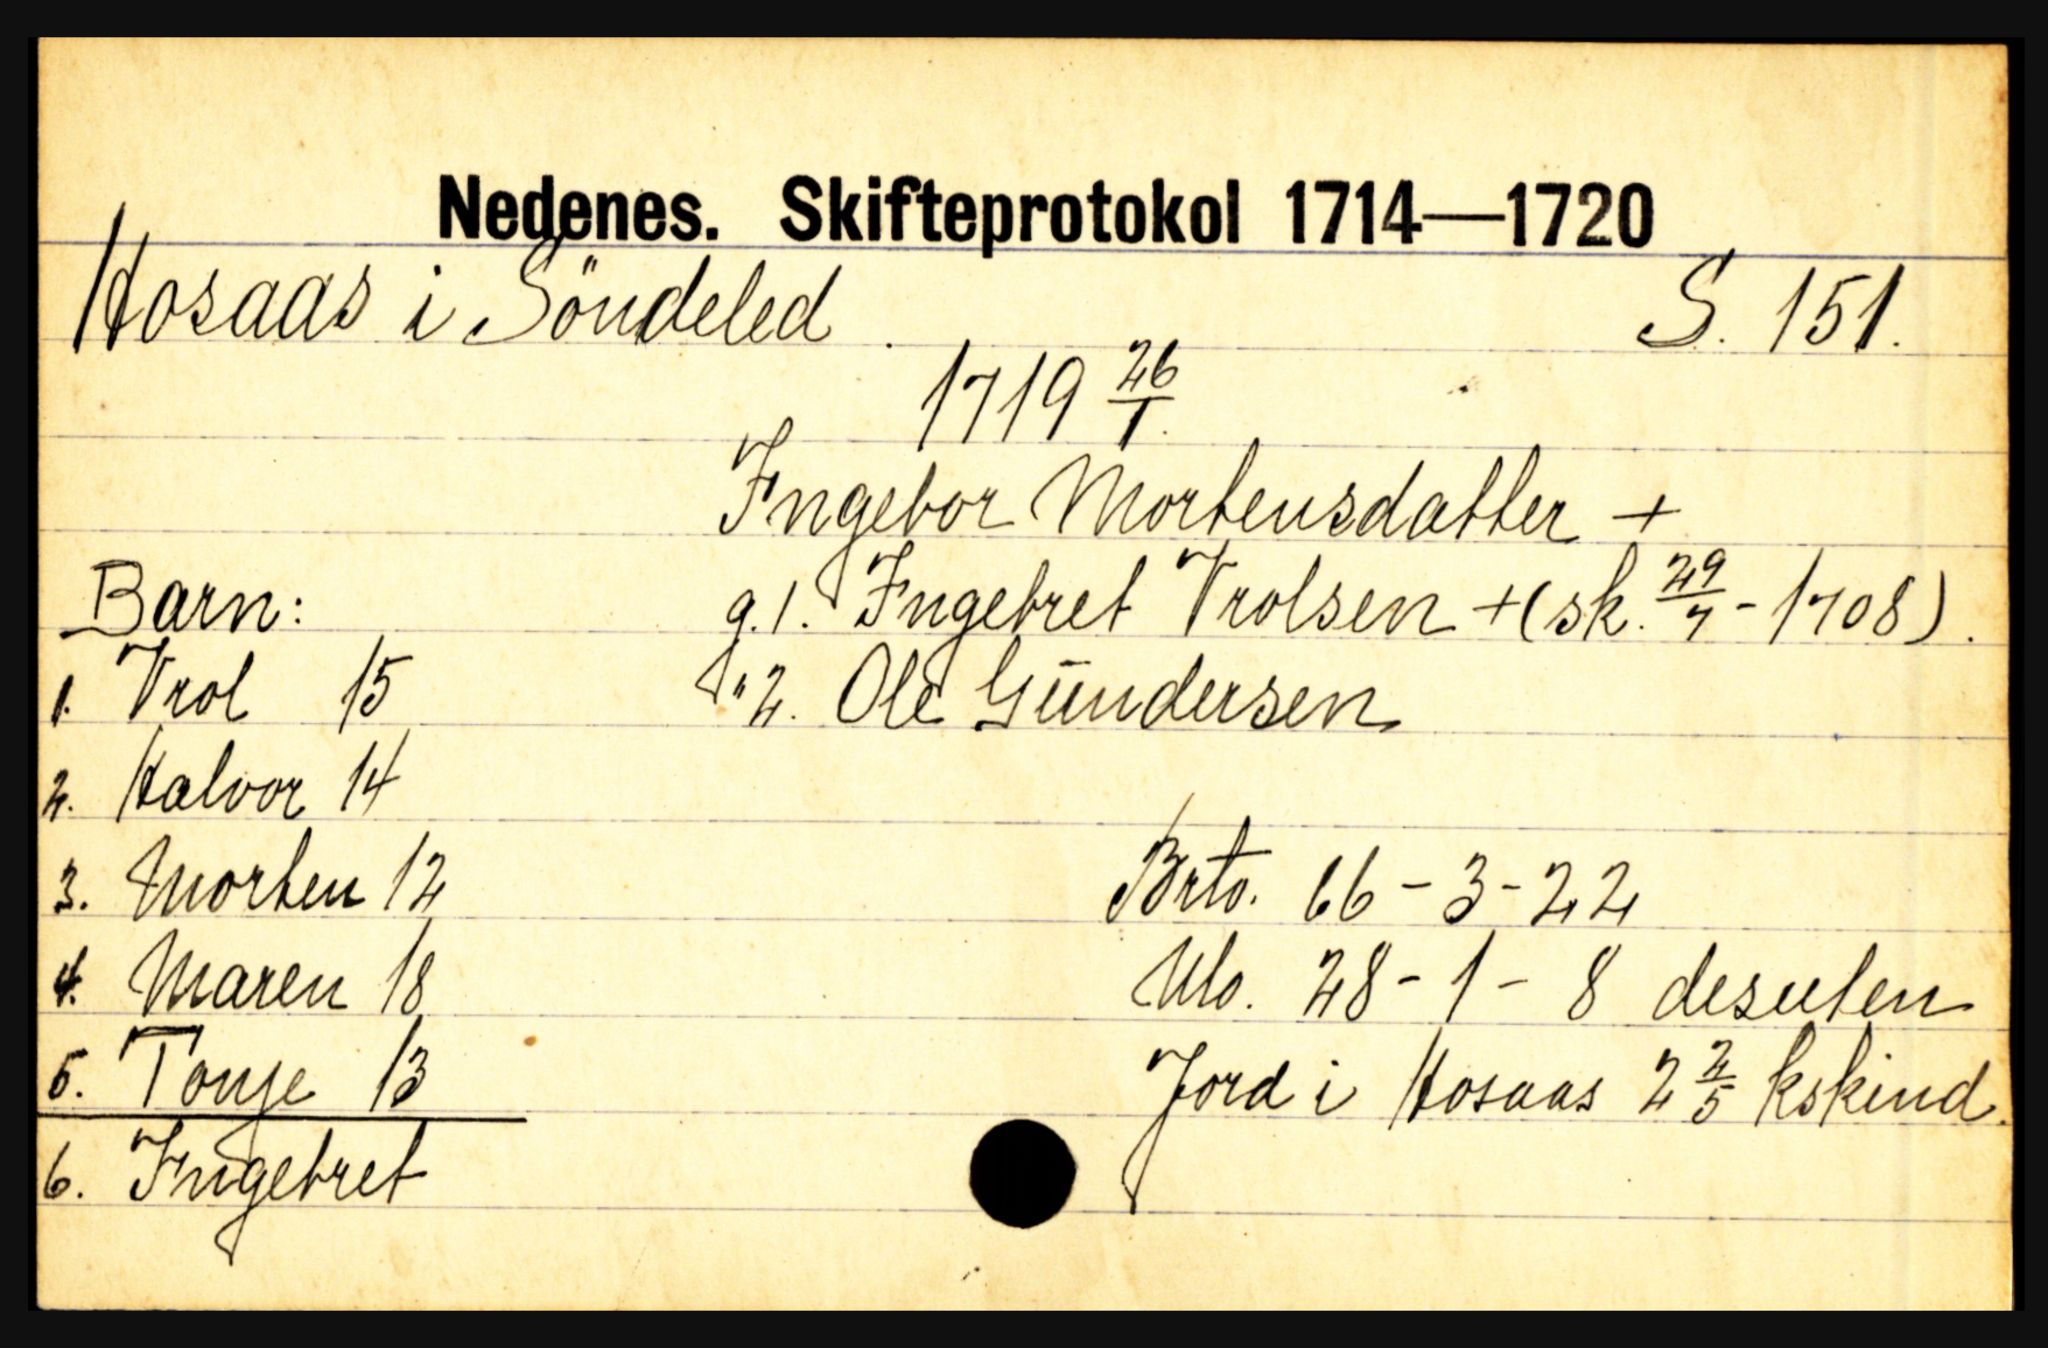 Nedenes. Skifteprotokol 1714—1720
Hosaas i Söndeled. S. 151.
1719 26/1.
Ingebor Mortensdatter +
g. 1. Ingebret Vrolsen + (sk. 29/7 - 1708).
" 2. Ole Gūndersen
Barn:
1. Vrol 15
2. Halvor 14
3. Morten 12
4. Maren 18
5. Tonje 13
6. Ingebret
Brto. 66 - 3 - 22
Nto. 28 - 1 - 8 desuten
Jord i Hosaas 2 2/5 kskind.